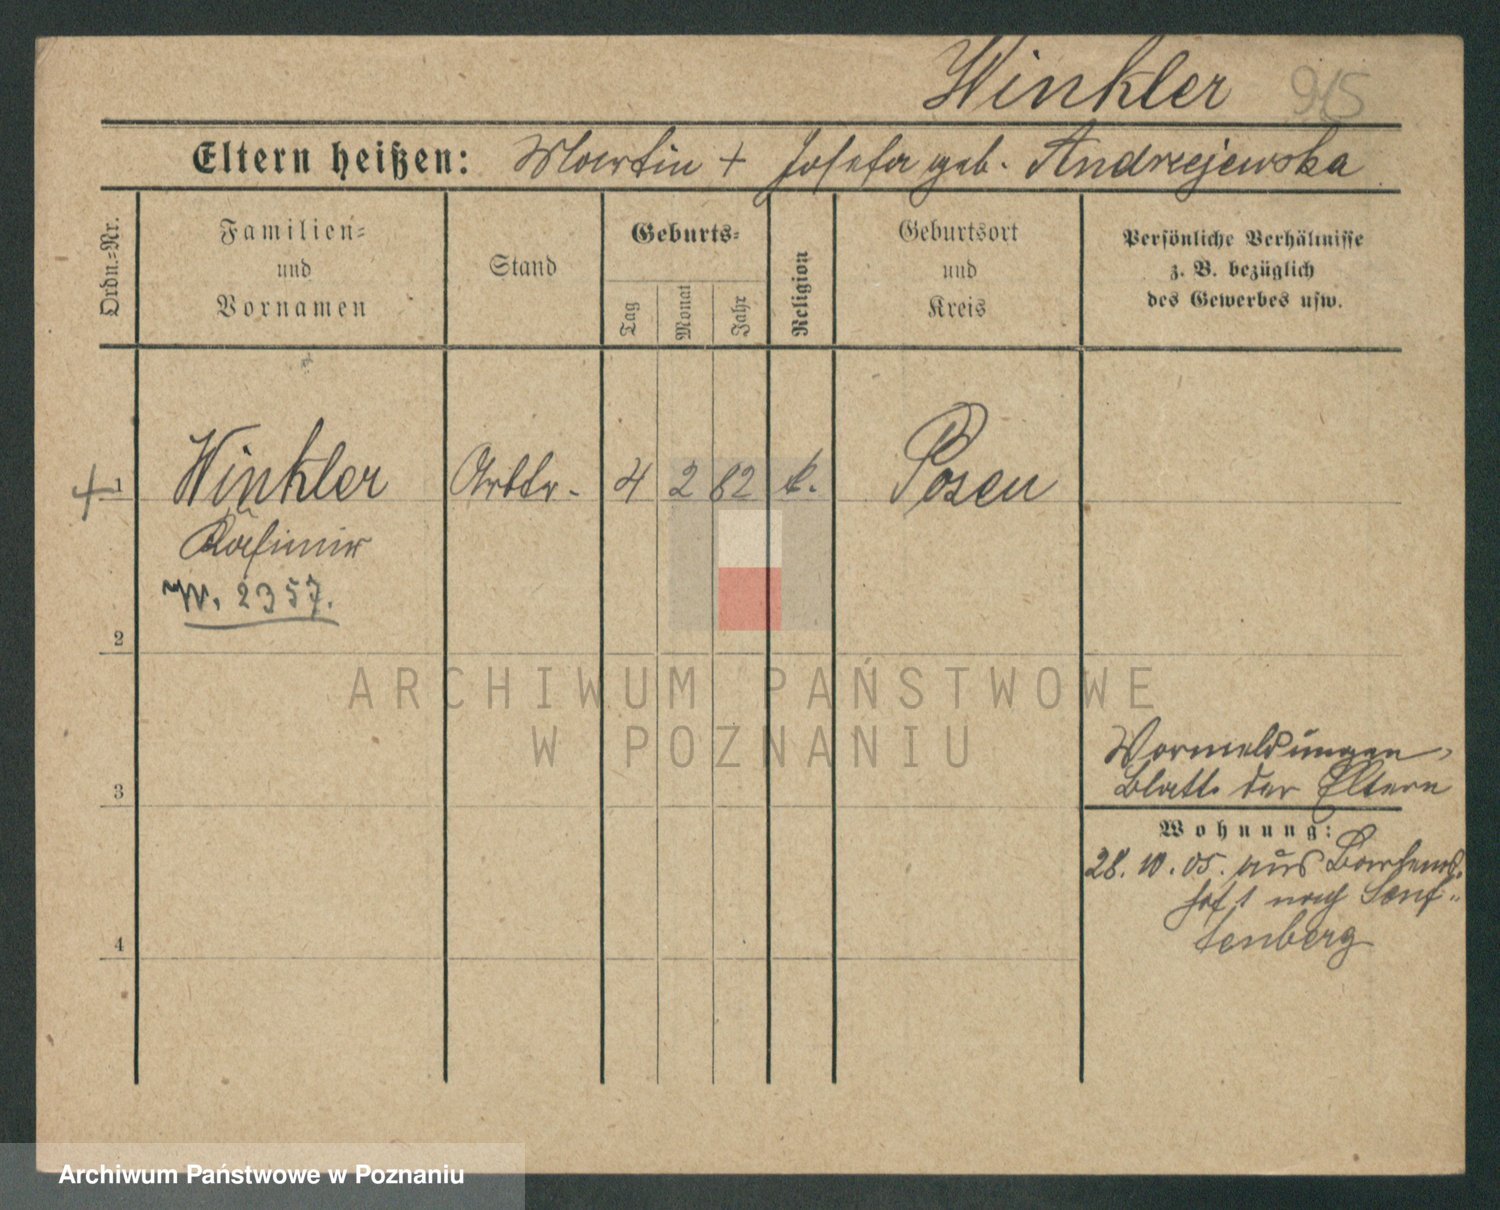 Winkler 945
Eltern heißen: Martin + Josefa geb. Andrzejewska
Ordn.-Nr.
Familien-
und
Vornamen
Stand
Geburts-
Tag
Monat
Jahr
Religion
Geburtsort
und
Kreis
Persönliche Verhältnisse
z. B. bezüglich
des Gewerbes usw.
+ 1 Winkler Arbtr. 4 2 82 k. Posen
Kasimir
W. 2357.
2
ARCHIWUM PAŃSTWOWE
W POZNANIU
Vormeldungen
3 Blatt. der Eltern
Wohnung:
28. 10. 05. aus
nach Senf-
4 tenberg
Archiwum Państwowe w Poznaniu